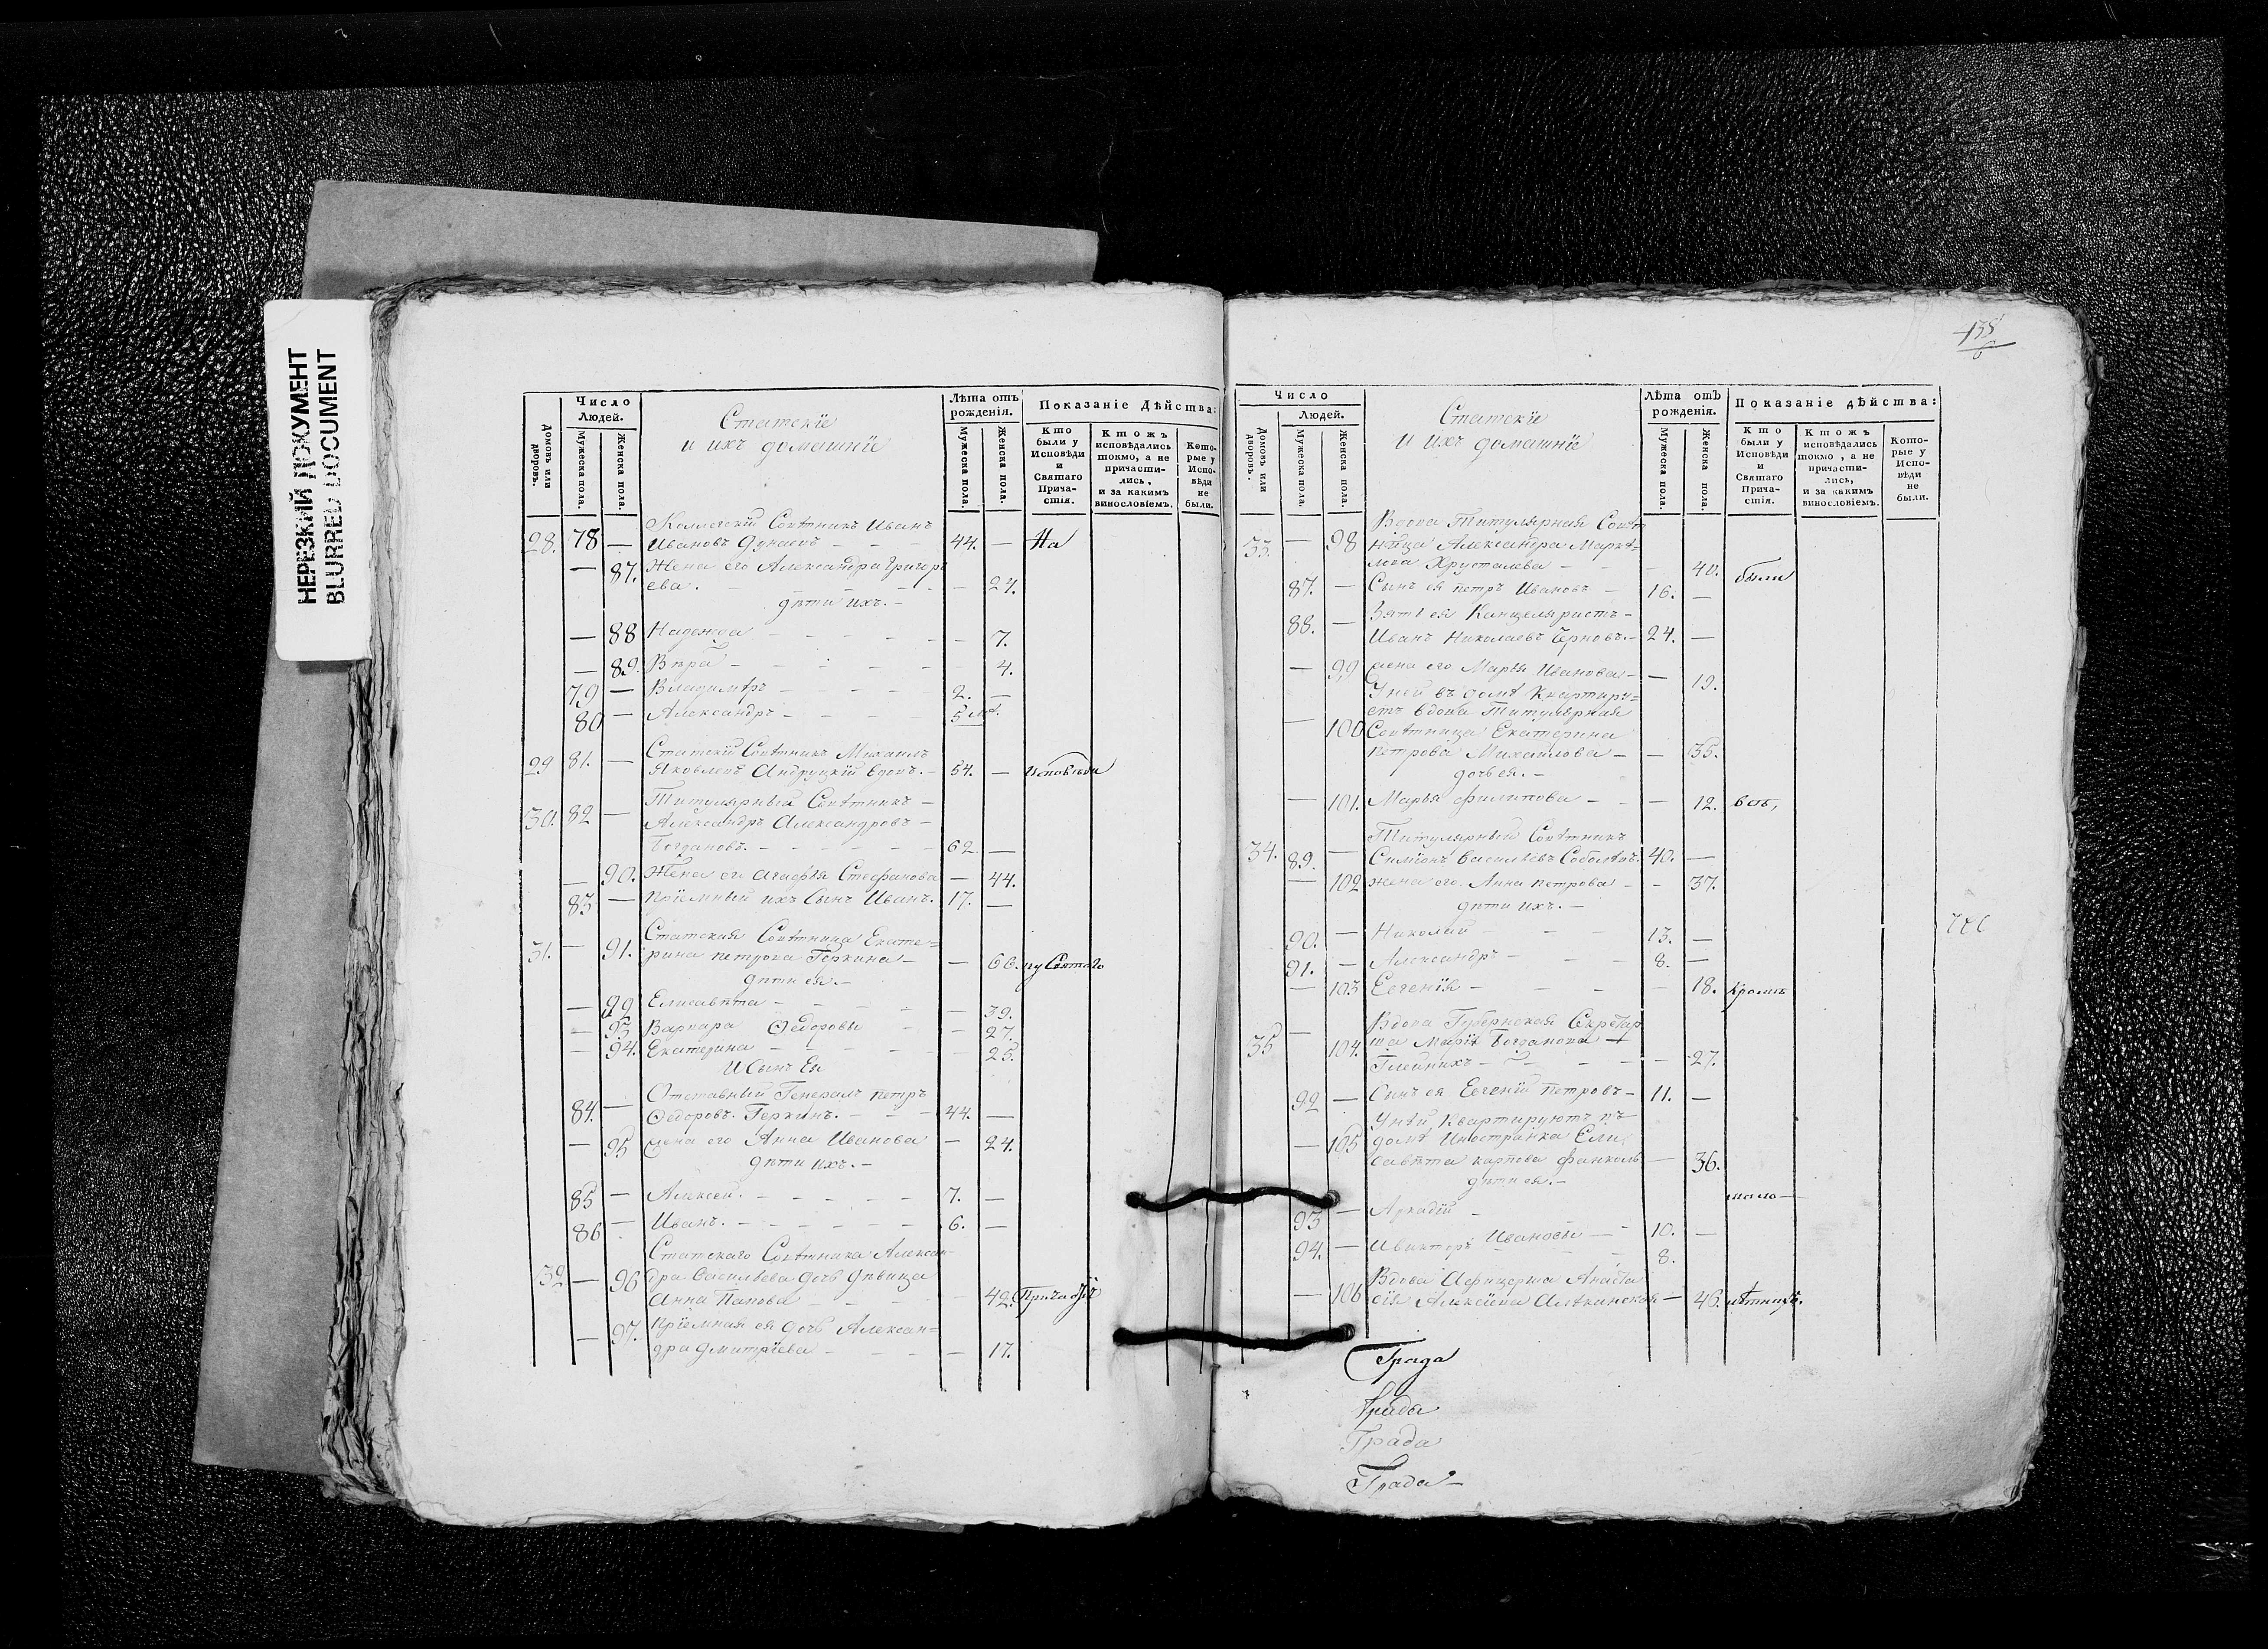 НЕРЕЗКИЙ ДОКУМЕНТ
BLURRED DOCUMENT
Число Людей.
Статскіе
и ихъ домашніе
Лѣта отъ рожденія.
Показаніе Дѣйства:
Домовъ или дворовъ.
Мужеска пола.
Женска пола.
Мужеска пола.
Женска пола.
Кто были у Исповѣди и Святаго Причастія.
Ктожъ исповѣдались токмо, а не причастились, и за какимъ винословіемъ.
Которые у Исповѣди не были.
Коллегскій Совѣтникъ Иванъ
28. 78 — Ивановъ 44. — На
— 87. Жена его Александра Григорь
ева. — 24.
дѣти ихъ. —
— 88 Надежда — 7.
— 89. Вѣра — 4.
79 — Владиміръ 2. —
80 — Александръ 5 м.
Статскій Совѣтникъ Михаилъ
29 81. — Яковлевъ Андруцкій вдовъ. — 54. — Исповѣди
Титулярный Совѣтникъ —
30. 82 — Александръ Александровъ —
Богдановъ. 62. —
— 90. Жена его Агафья Стефанова — 44.
83 — Пріемный ихъ Сынъ Иванъ. 17. —
Статская Совѣтница Екате=
31. — 91. рина Петрова Геркина — — 66. и у Святаго
дѣти ея. —
— 92 Елисавѣта — 39.
— 93 Варвара Ѳедоровы — 27.
— 94. Екатерина — 25.
И Сынъ Ея
Отставный Генералъ Петръ
84. — Ѳедоровъ Геркинъ. 44. —
— 95 Жена его Анна Иванова — 24.
дѣти ихъ. —
85 — Алексей. 7. —
86 — Иванъ. 6. —
Статскаго Совѣтника Алексан
32 — 96 дра Васильева дочь дѣвица
Анна Попова — 42. Причастія
— 97. Пріемная ея дочь Алексан=
дра Дмитріева — 17.
135
6
Число
Людей.
Статскіе
и ихъ домашніе
Лѣта отъ рожденія.
Показаніе дѣйства:
Домовъ или дворовъ.
Мужеска пола.
Женска пола.
Мужеска пола.
Женска пола.
Кто были у Исповѣди и Святаго Причастія.
Ктожъ исповѣдались токмо, а не причастились, и за какимъ винословіемъ.
Которые у Исповѣди не были.
Вдова Титулярная Совѣт
33. — 98 ница Александра Маркѣ=
лова Хрусталева — 40. были
87. — Сынъ ея Петръ Ивановъ 16. —
Зять ея Канцеляристъ —
88. — Иванъ Николаевъ Черновъ. — 24. —
— 99 Жена его Марья Иванова — — 19.
У ней въ домѣ Квартиру=
етъ вдова Титулярная
— 100 Совѣтница Екатерина
Петрова Михайлова — — 35.
дочь ея. —
— 101. Марья Филипова — 12. всѣ,
Титулярный Совѣтникъ
34. 89. — Симіонъ Васильевъ Соболевъ. 40. —
— 102 Жена его Анна Петрова — 37.
дѣти ихъ. —
90. — Николай 13. —
91. — Александръ 8. —
— 103 Евгенія — 18. Кромѣ
Вдова Губернская Секретар
35 — 104. ша Марія Богданова —
— 27.
92 — Сынъ ея Евгеній Петровъ — 11. —
У нѣй Квартируютъ въ
— 105 домѣ Иностранка Ели
савѣта Карпова — 36.
дѣти ея. —
мало—
93 — Аркадій
10. —
94. — И Викторъ Ивановы —
8.
Вдова Афицерша Анаста
— 106 сія Алексѣева — 46. лѣтнихъ.
Града
Града
Града
Града —